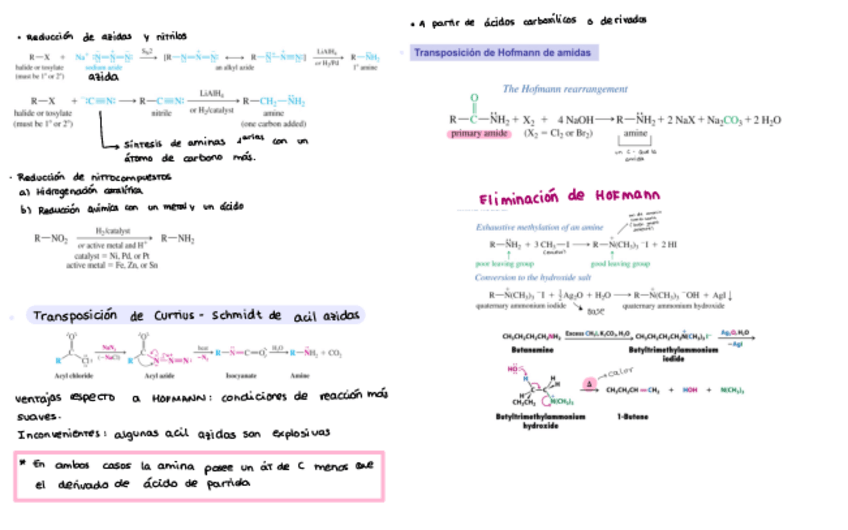 • Reducción de azidas y nitrilos
R—X + Na⁺ :N̈=N=N̈: SN2 [R—N̈—N=N̈: ⟷ R—N̈—N≡N:] LiAlH₄ or H₂/Pd R—NH₂
halide or tosylate sodium azide an alkyl azide 1° amine
(must be 1° or 2°)
azida
R—X + ⁻:C≡N: → R—C≡N: LiAlH₄ or H₂/catalyst → R—CH₂—N̈H₂
halide or tosylate nitrile amine
(must be 1° or 2°) (one carbon added)
Síntesis de aminas 1arias con un
átomo de carbono más.
• Reducción de nitrocompuestos
a) Hidrogenación catalítica
b) Reducción química con un metal y un ácido
R—NO₂ H₂/catalyst R—NH₂
or active metal and H⁺
catalyst = Ni, Pd, or Pt
active metal = Fe, Zn, or Sn
Transposición de Curtius - Schmidt de acil azidas
R Cl NaN₃ (−NaCl) R N=N=N: heat −N₂ R—N=C=O H₂O R—NH₂ + CO₂
Acyl chloride Acyl azide Isocyanate Amine
ventajas respecto a HOFMANN: condiciones de reacción más
suaves.
Inconvenientes: algunas acil azidas son explosivas
* En ambos casos la amina posee un át de C menos que
el derivado de ácido de partida
• A partir de ácidos carboxílicos o derivados
Transposición de Hofmann de amidas
The Hofmann rearrangement
O
R—C—N̈H₂ + X₂ + 4 NaOH → R—N̈H₂ + 2 NaX + Na₂CO₃ + 2 H₂O
primary amide (X₂ = Cl₂ or Br₂) amine
un C - que la
amida
Eliminación de HOFMANN
Exhaustive methylation of an amine
R—N̈H₂ + 3 CH₃—I → R—N⁺(CH₃)₃ ⁻I + 2 HI
poor leaving group good leaving group
Conversion to the hydroxide salt
R—N⁺(CH₃)₃ ⁻I + ½Ag₂O + H₂O → R—N⁺(CH₃)₃ ⁻OH + AgI↓
quaternary ammonium iodide quaternary ammonium hydroxide
BASE
CH₃CH₂CH₂CH₂NH₂ Excess CH₃I, K₂CO₃, H₂O CH₃CH₂CH₂CH₂N(CH₃)₃I⁻ Ag₂O, H₂O −AgI
Butanamine Butyltrimethylammonium
iodide
calor
HO H H H CH₃CH₂ N(CH₃)₃ Δ CH₃CH₂CH=CH₂ + HOH + N(CH₃)₃
Butyltrimethylammonium 1-Butene
hydroxide